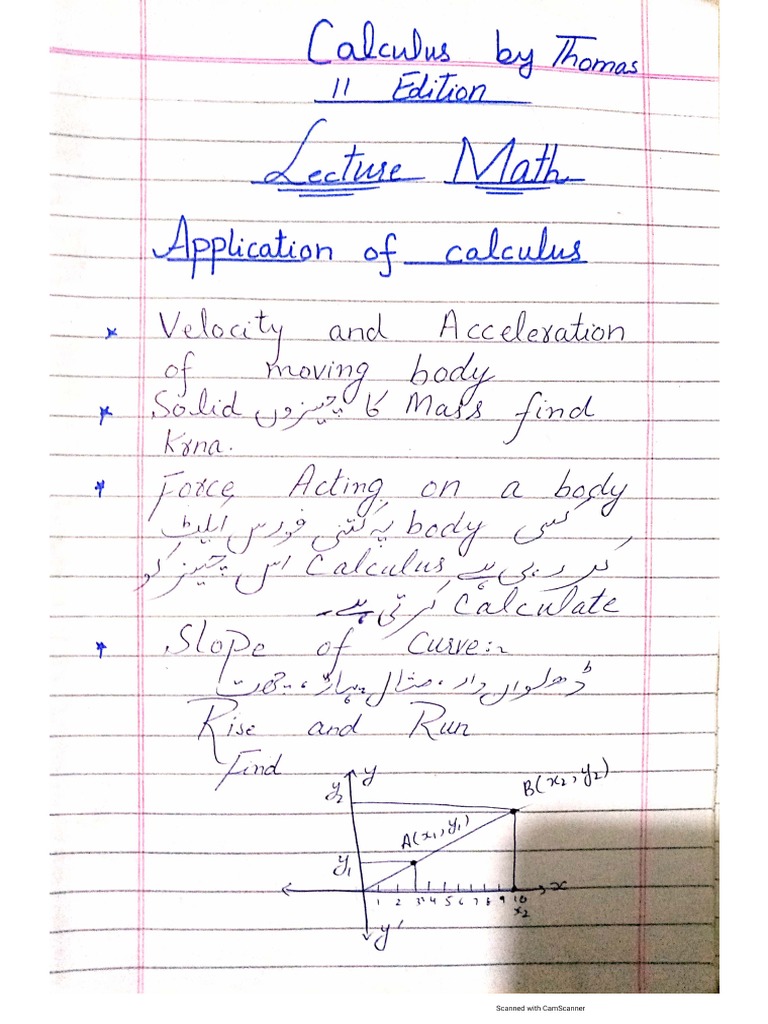 Calculus by Thomas
11 Edition
Lecture Math
Application of calculus
* Velocity and Acceleration
of moving body
* Solid چیزوں کا Mass find
Krna.
* Force Acting on a body
کسی body پہ کتنی فورس ایکٹ
کر رہی ہے Calculus اس چیز کو
Calculate کرتی ہے۔
* Slope of Curve:~
ڈھلوان دار، مثال پہاڑ، چھت
Rise and Run
Find
y
B(x2, y2)
y2
A(x1, y1)
y1
x
1 2 3 4 5 6 7 8 9 10
x2
y'
Scanned with CamScanner